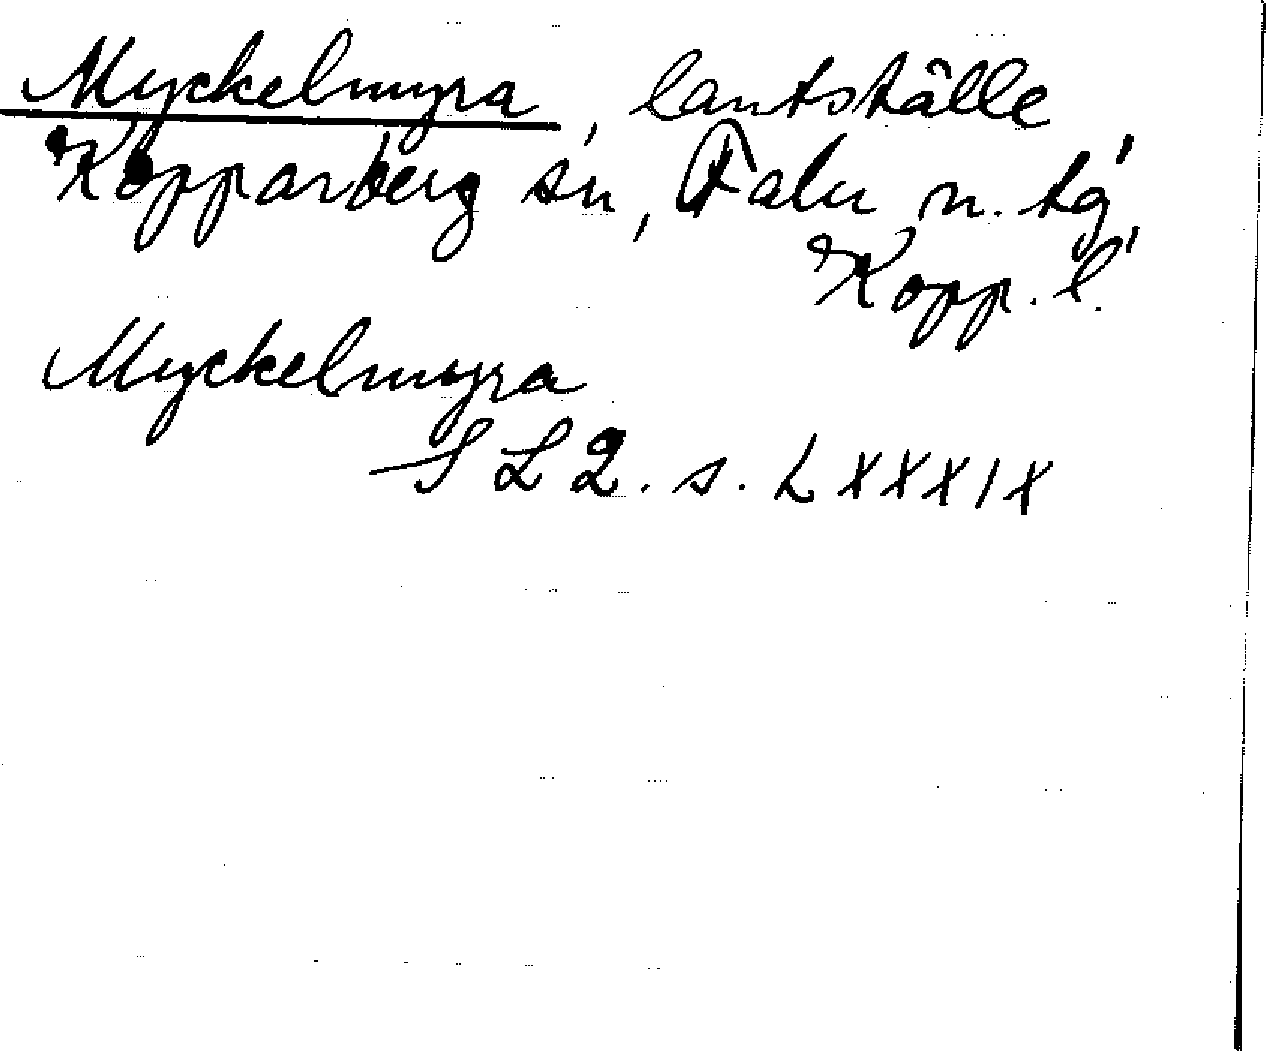 Myckelmyra, lantställe,
Kopparberg sn, Falu n. tg,
Kopp. l.
Myckelmyra
SL 2. s. LXXXIX